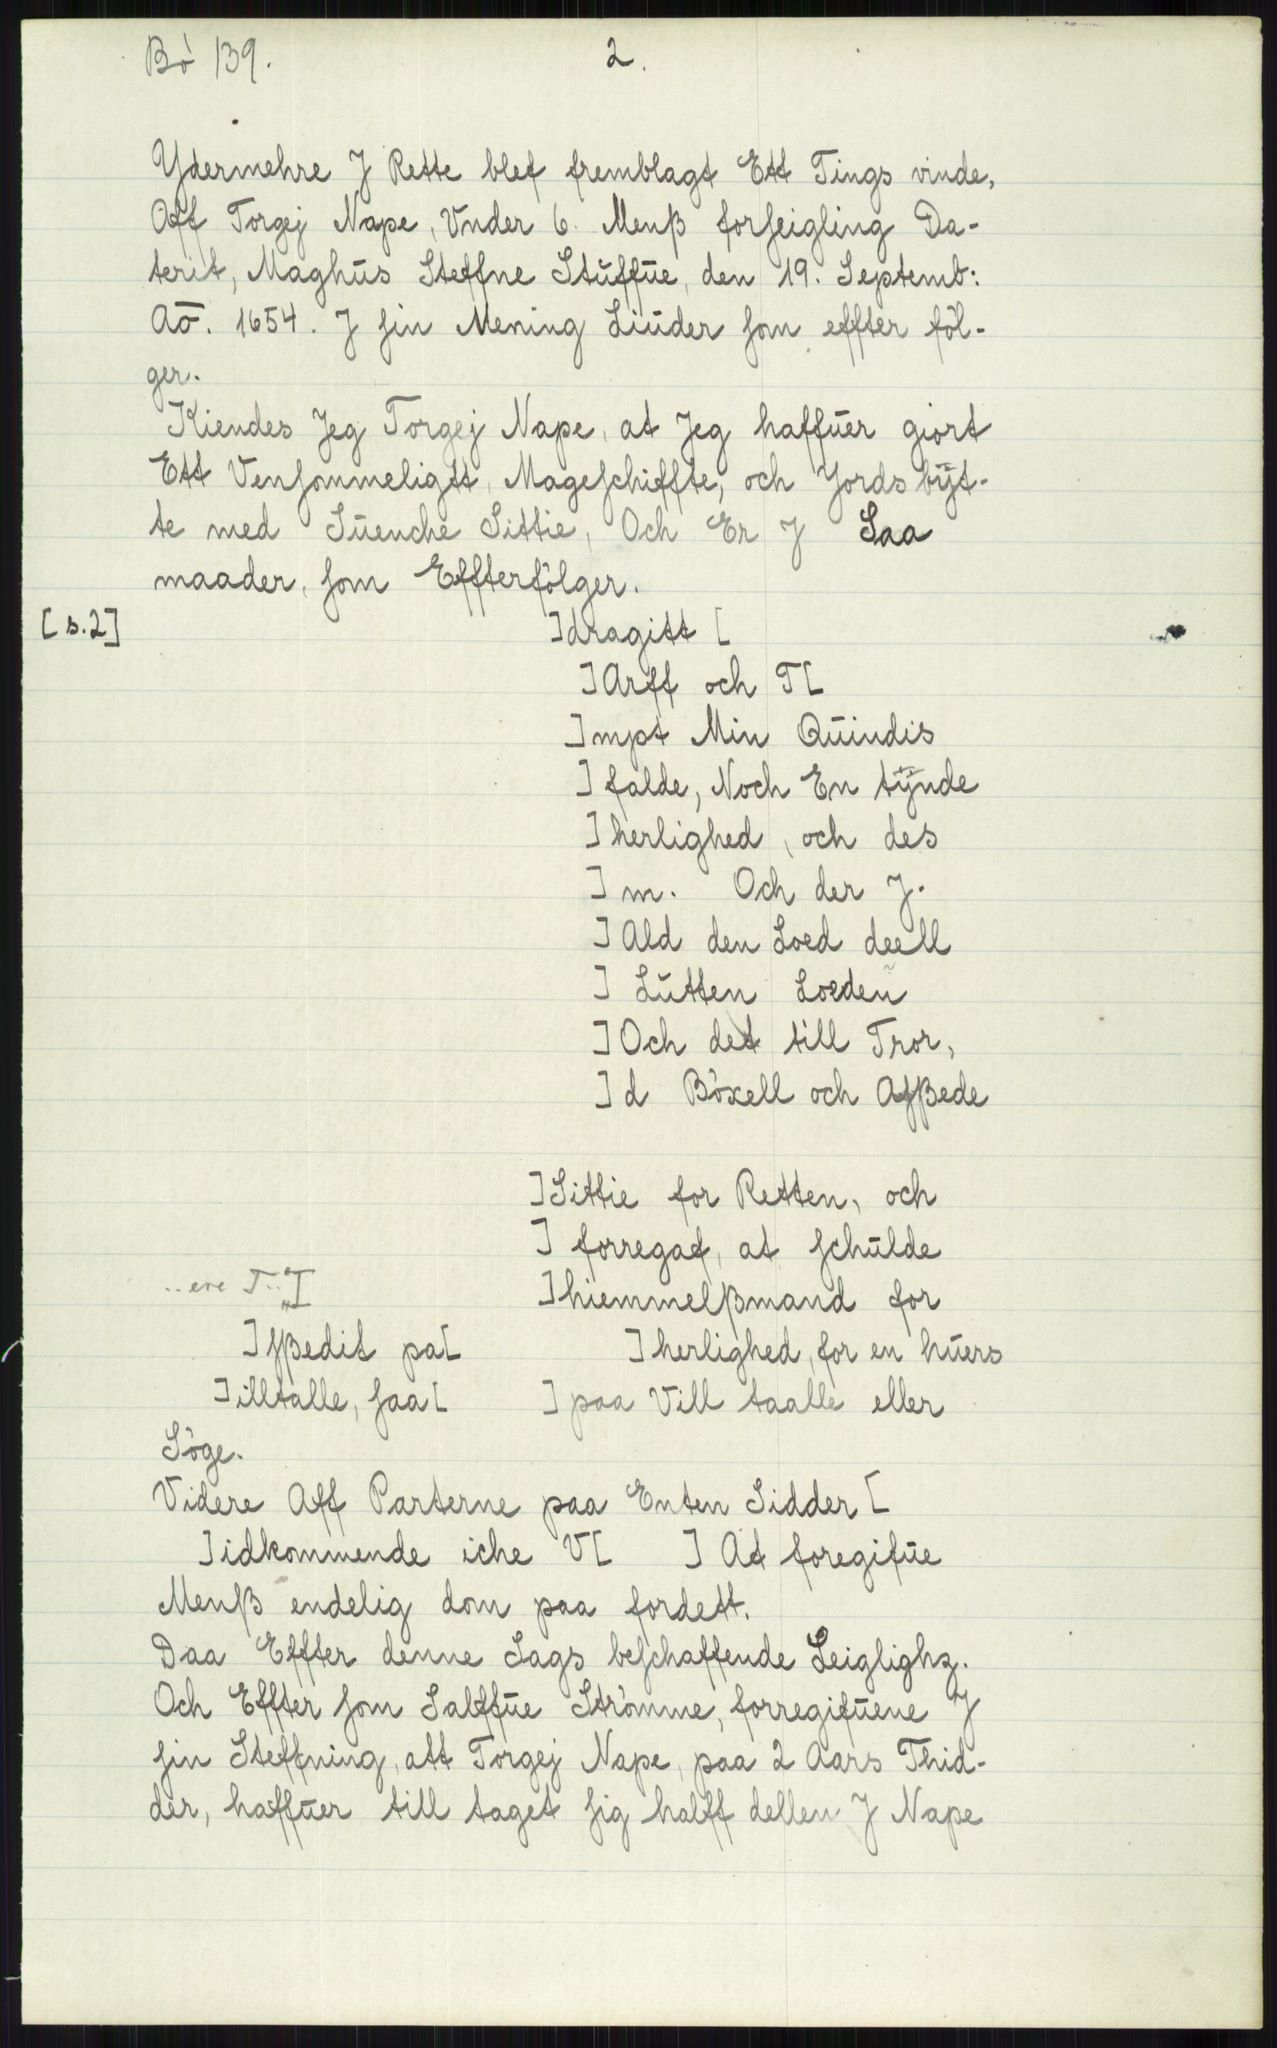 Bö 139.
2.
Ydermehre J Rette blef fremblagt Ett Tings vinde,
Aff Torgej Nape, Vnder 6. Menß forseigling Da-
terit, Maghūs Steffne Stūffūe, den 19. Septemb:
Aō. 1654. J sin Mening Liūder som effter föl-
ger.
Kiendes Jeg Torgej Nape, at Jeg haffūer giort
Ett Vensommeligtt, Mageschiffte, och Jords bÿt-
te med Sūenche Sittie, Och Er J Saa
maader, som Effterfölger.
[s.2] ]dragitt [
]Arff och T[
]mpt Min Qūindis
] falde, Noch En tÿnde
]herlighed, och des
] m. Och der J.
] Ald den Loed deell
] Lūtten Loeden
] Och det till Tror,
] d Böxell och Aßede
]Sittie for Retten, och
] forregaf, at schūlde
..ere T..[ ]hiemmelßmand for
]sßedit pa[ ]herlighed, for en hūers
]illtalle, saa[ ]paa Vill taalle eller
Söge.
Videre Aff Parterne paa Enten Sidder [
]idkommende iche V[ ] At foregifūe
Menß endelig dom paa fordett.
Daa Effter denne Sags beschaffende Leiglighz.
Och Effter som Salffūe Strömme, forregifūene J
sin Steffning, att Torgej Nape, paa 2 Aars Thid-
der, haffūer till taget sig halff dellen J Nape